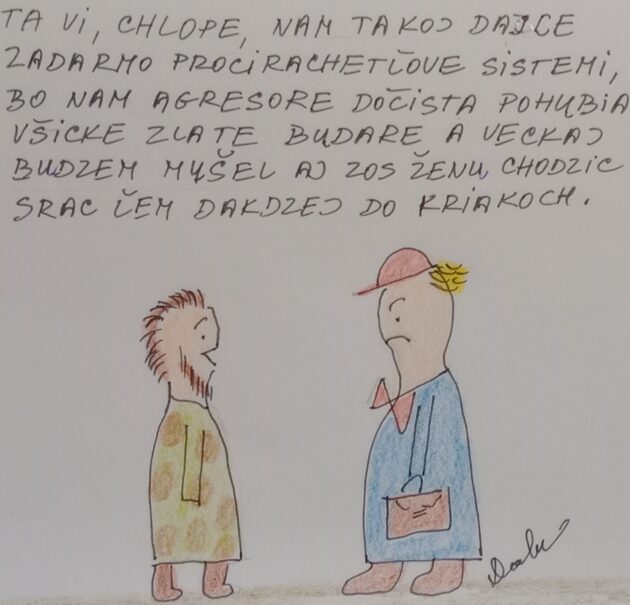 TA VI, CHLOPE, NAM TAKOJ DAJCE
ZADARMO PROCIRACHETĽOVE SISTEMI,
BO NAM AGRESORE DOČISTA POHUBIA
VŠICKE ZLATE BUDARE A VECKAJ
BUDZEM MUŠEL AJ ZOS ŽENU CHODZIC
SRAC ĽEM DAKDZEJ DO KRIAKOCH.